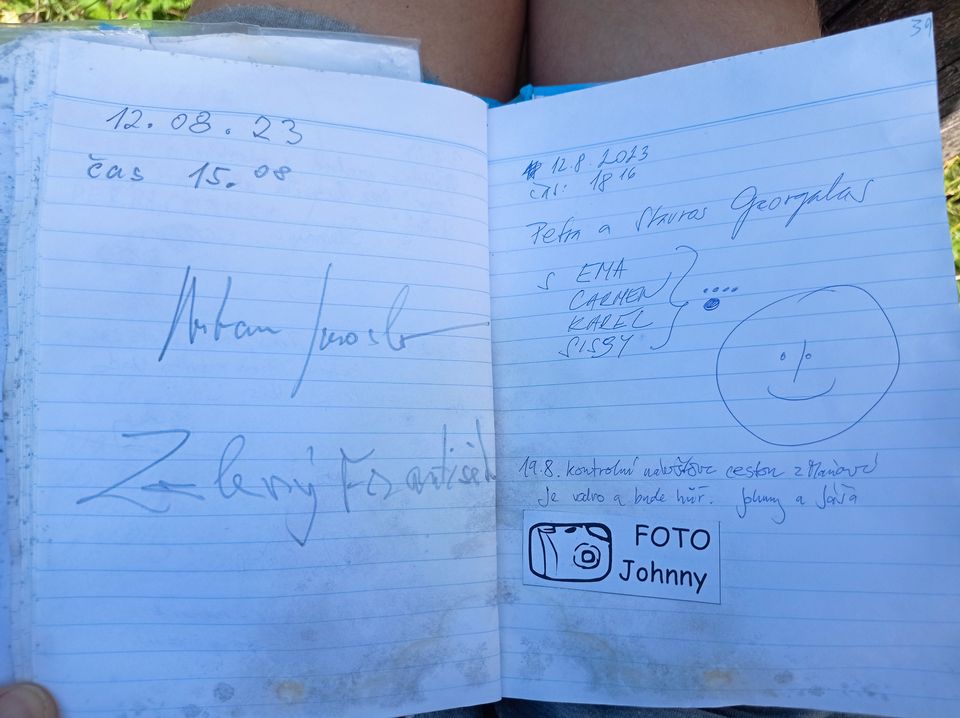 12.08.23
čas 15.08
Urban
Zelený František
39
12.8.2023
čas: 18 16
Petra a Stavros Georgalas
s EMA
CARMEN
KAREL
SISSY
19.8. kontrolní návštěva cestou z
je vedro a bude hůř. Johnny a Jáša
FOTO
Johnny